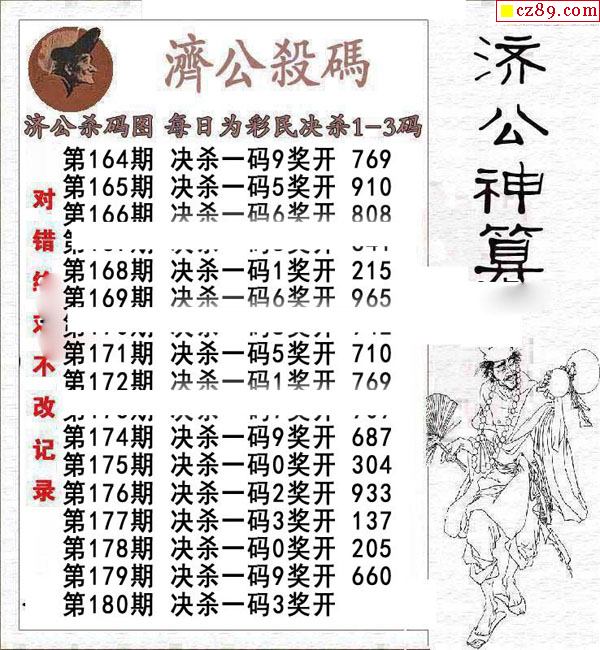 cz89.com
濟公殺碼
济公杀码图 每日为彩民决杀1-3码
第164期 决杀一码9奖开 769
第165期 决杀一码5奖开 910
第166期 决杀一码6奖开 808
第168期 决杀一码1奖开 215
第169期 决杀一码6奖开 965
第171期 决杀一码5奖开 710
第172期 决杀一码1奖开 769
第174期 决杀一码9奖开 687
第175期 决杀一码0奖开 304
第176期 决杀一码2奖开 933
第177期 决杀一码3奖开 137
第178期 决杀一码0奖开 205
第179期 决杀一码9奖开 660
第180期 决杀一码3奖开
对错
不改记录
济公神算